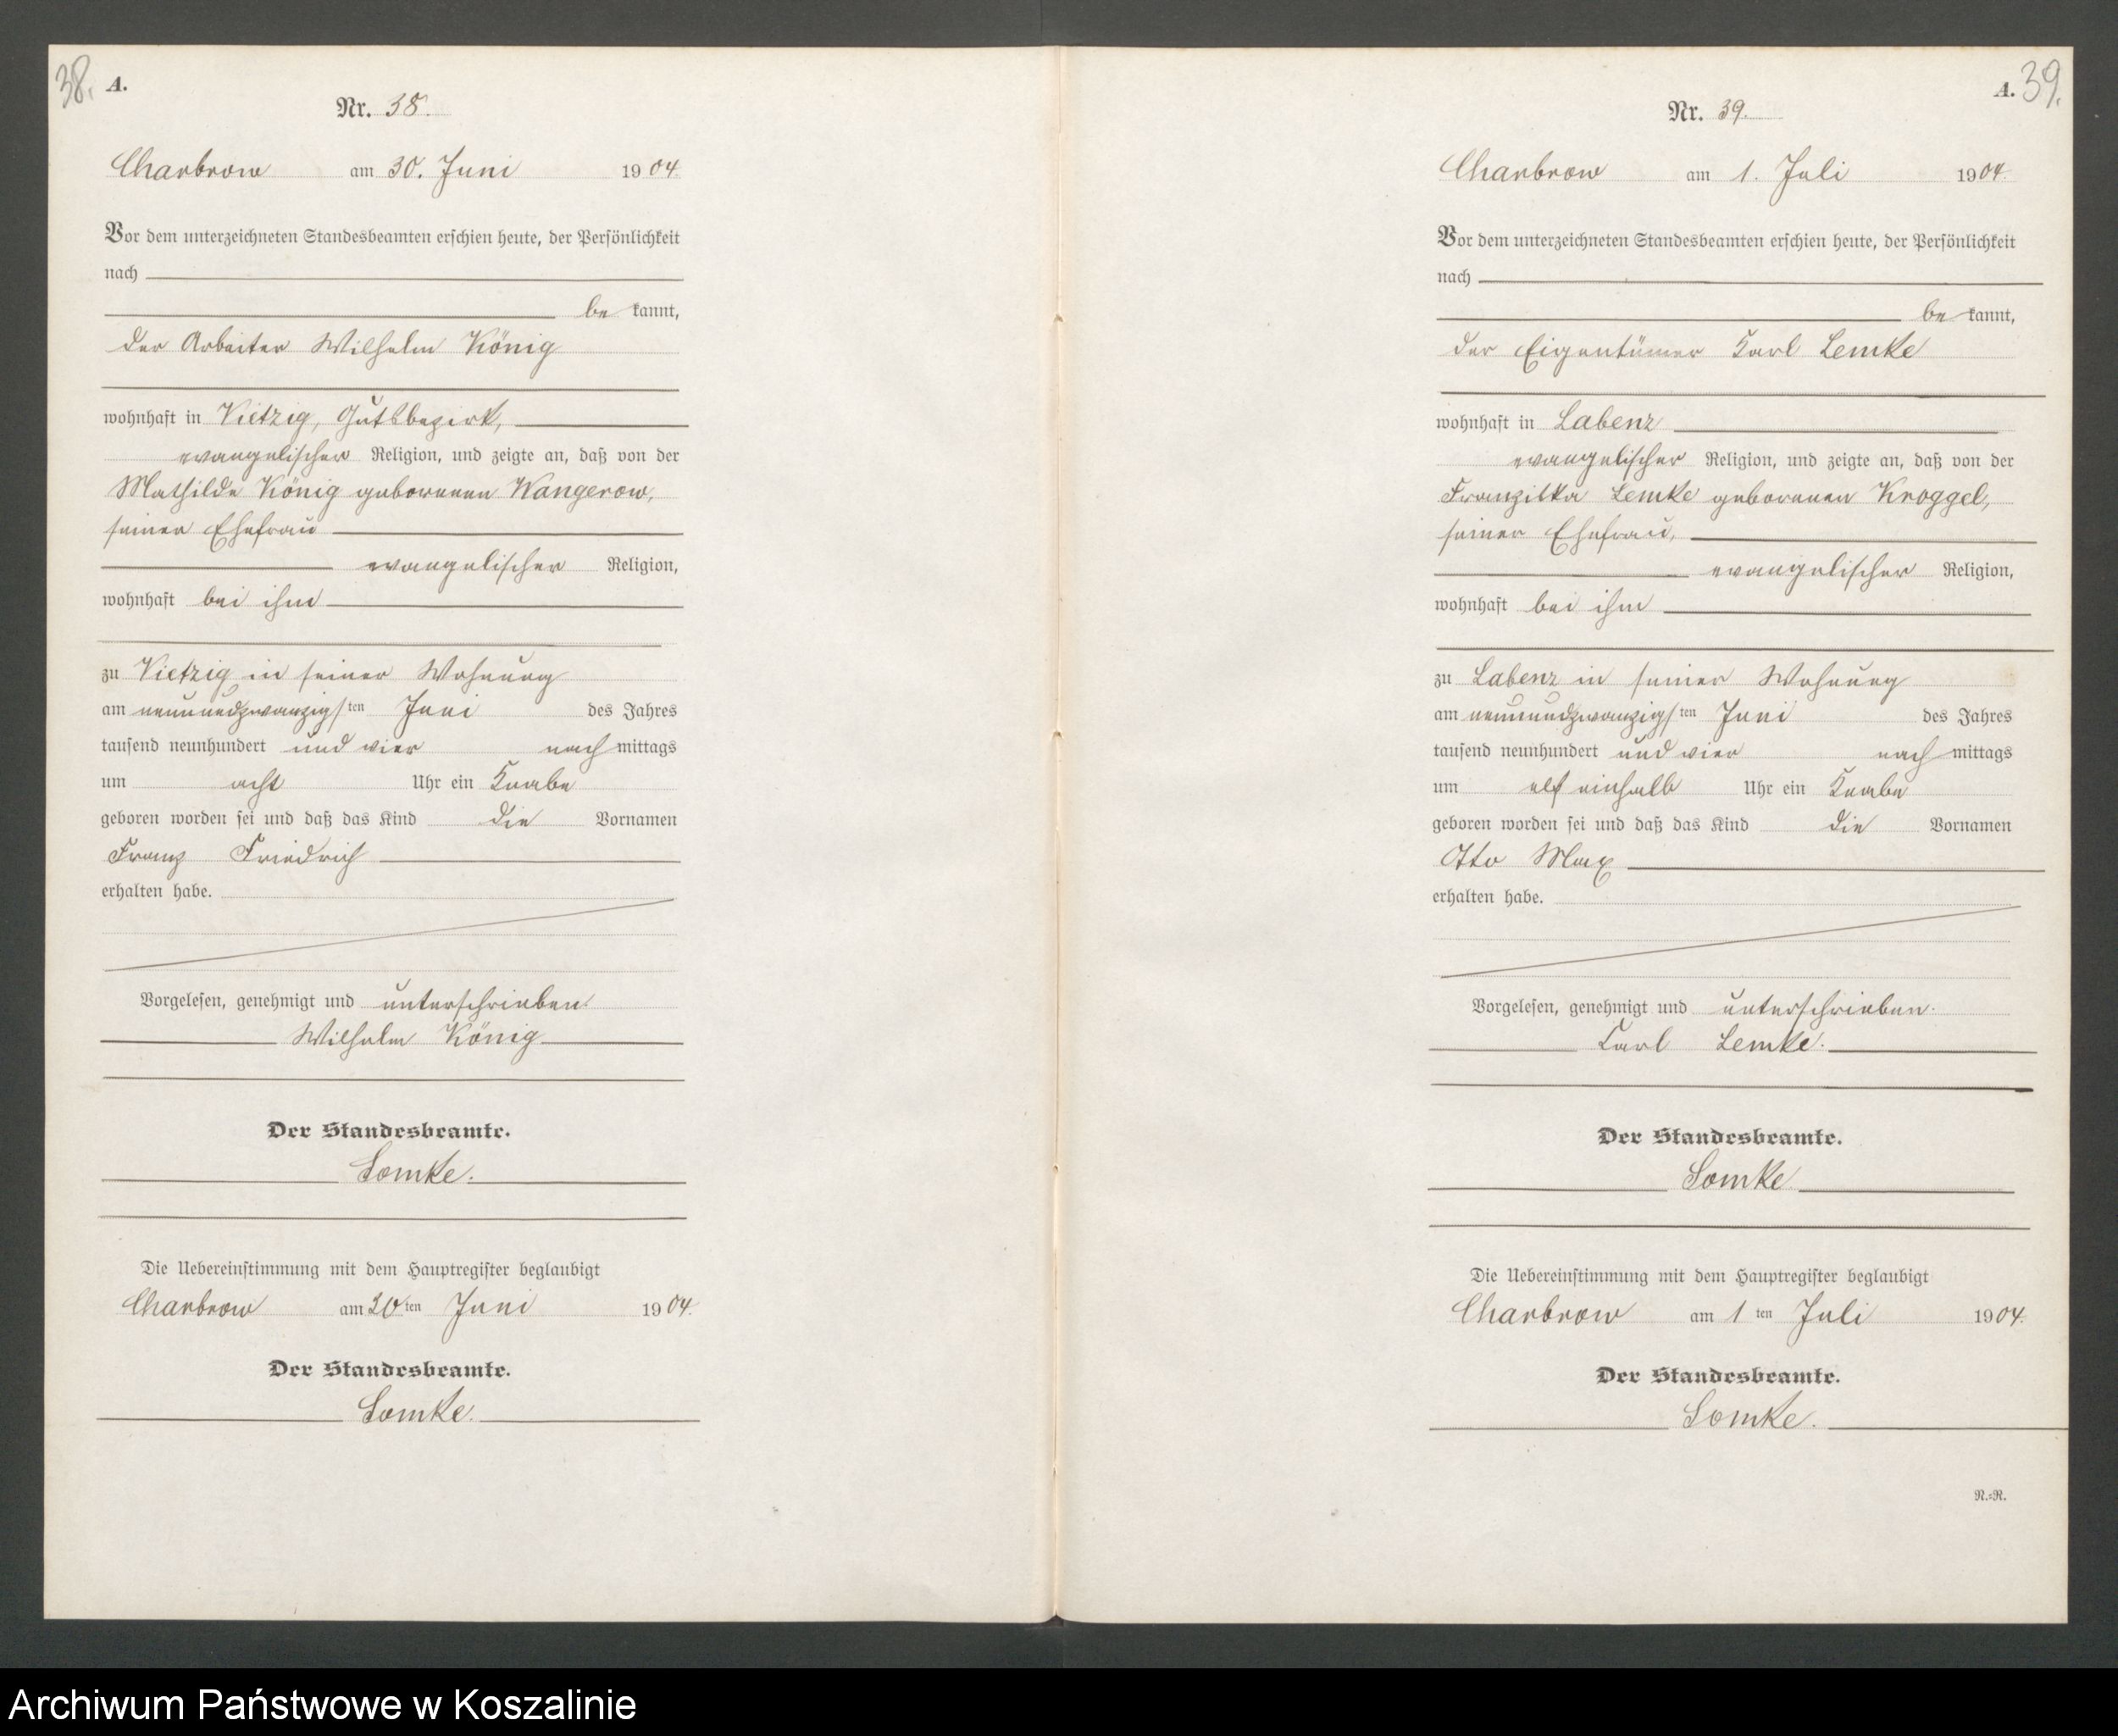 38.
A.
Nr. 38.
Charbrow am 30. Juni 1904
Vor dem unterzeichneten Standesbeamten erschien heute, der Persönlichkeit
nach
be kannt,
der Arbeiter Wilhelm König
wohnhaft in Vietzig, Gutsbezirk,
evangelischer Religion, und zeigte an, daß von der
Mathilde König geborenen Wangerow,
seiner Ehefrau
evangelischer Religion,
wohnhaft bei ihm
zu Vietzig in seiner Wohnung
am neunundzwanzigsten Juni des Jahres
tausend neunhundert und vier nach mittags
um acht Uhr ein Knabe
geboren worden sei und daß das Kind die Vornamen
Franz Friedrich
erhalten habe.
Vorgelesen, genehmigt und unterschrieben.
Wilhelm König
Der Standesbeamte.
Lomke.
Die Uebereinstimmung mit dem Hauptregister beglaubigt
Charbrow am 30ten Juni 1904.
Der Standesbeamte.
Lomke.
A.
39.
Nr. 39.
Charbrow am 1. Juli 1904.
Vor dem unterzeichneten Standesbeamten erschien heute, der Persönlichkeit
nach
be kannt,
der Eigentümer Karl Lemke
wohnhaft in Labenz
evangelischer Religion, und zeigte an, daß von der
Franziska Lemke geborenen Kroggel,
seiner Ehefrau,
evangelischer Religion,
wohnhaft bei ihm
zu Labenz in seiner Wohnung
am neunundzwanzigsten Juni des Jahres
tausend neunhundert und vier nach mittags
um elf einhalb Uhr ein Knabe
geboren worden sei und daß das Kind die Vornamen
Otto Max
erhalten habe.
Vorgelesen, genehmigt und unterschrieben.
Karl Lemke.
Der Standesbeamte.
Lomke
Die Uebereinstimmung mit dem Hauptregister beglaubigt
Charbrow am 1ten Juli 1904.
Der Standesbeamte.
Lomke.
N.=R.
Archiwum Państwowe w Koszalinie